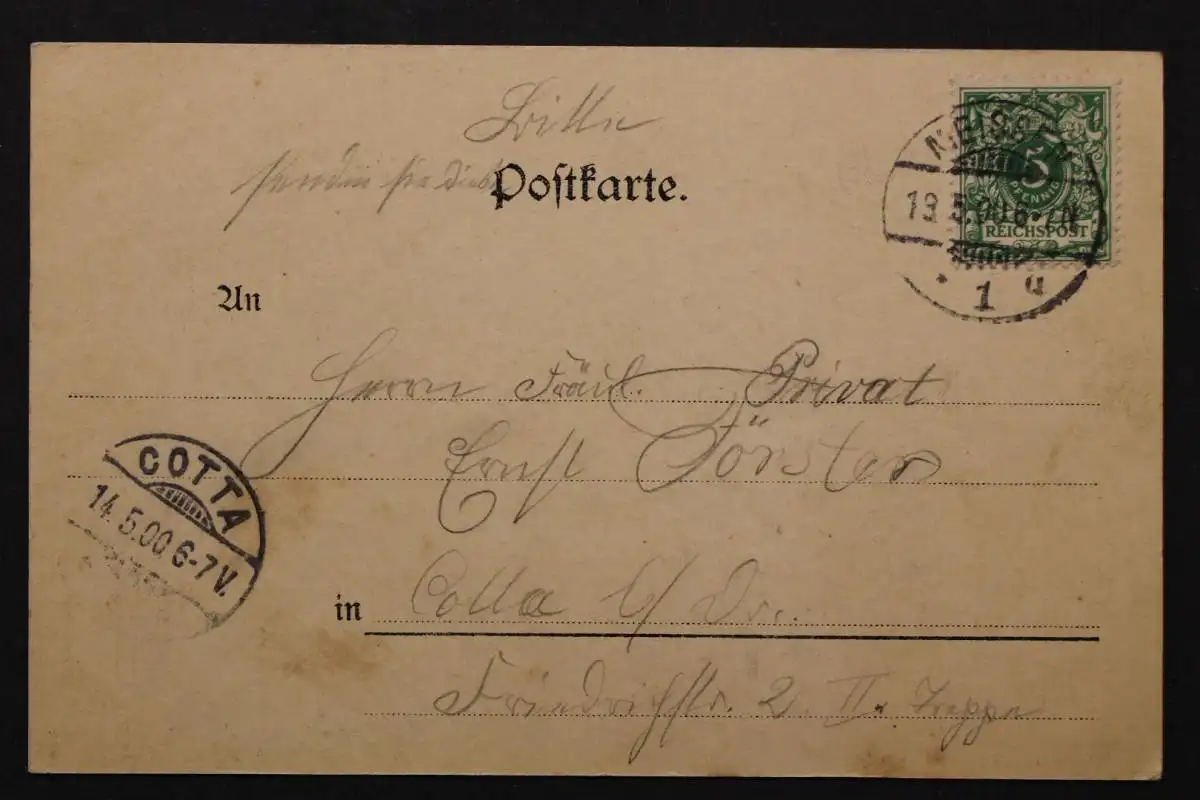 Bitte
senden sie diese
Postkarte.
MEISSEN
13.5.00 6-7N.
* 1 d
5
PFENNIG
REICHSPOST
An
Herrn Fräul. Privat
Ernst Förster
COTTA
14.5.00 6-7V.
in Cotta b/ Dr.
Friedrichstr. 2 II. Treppe